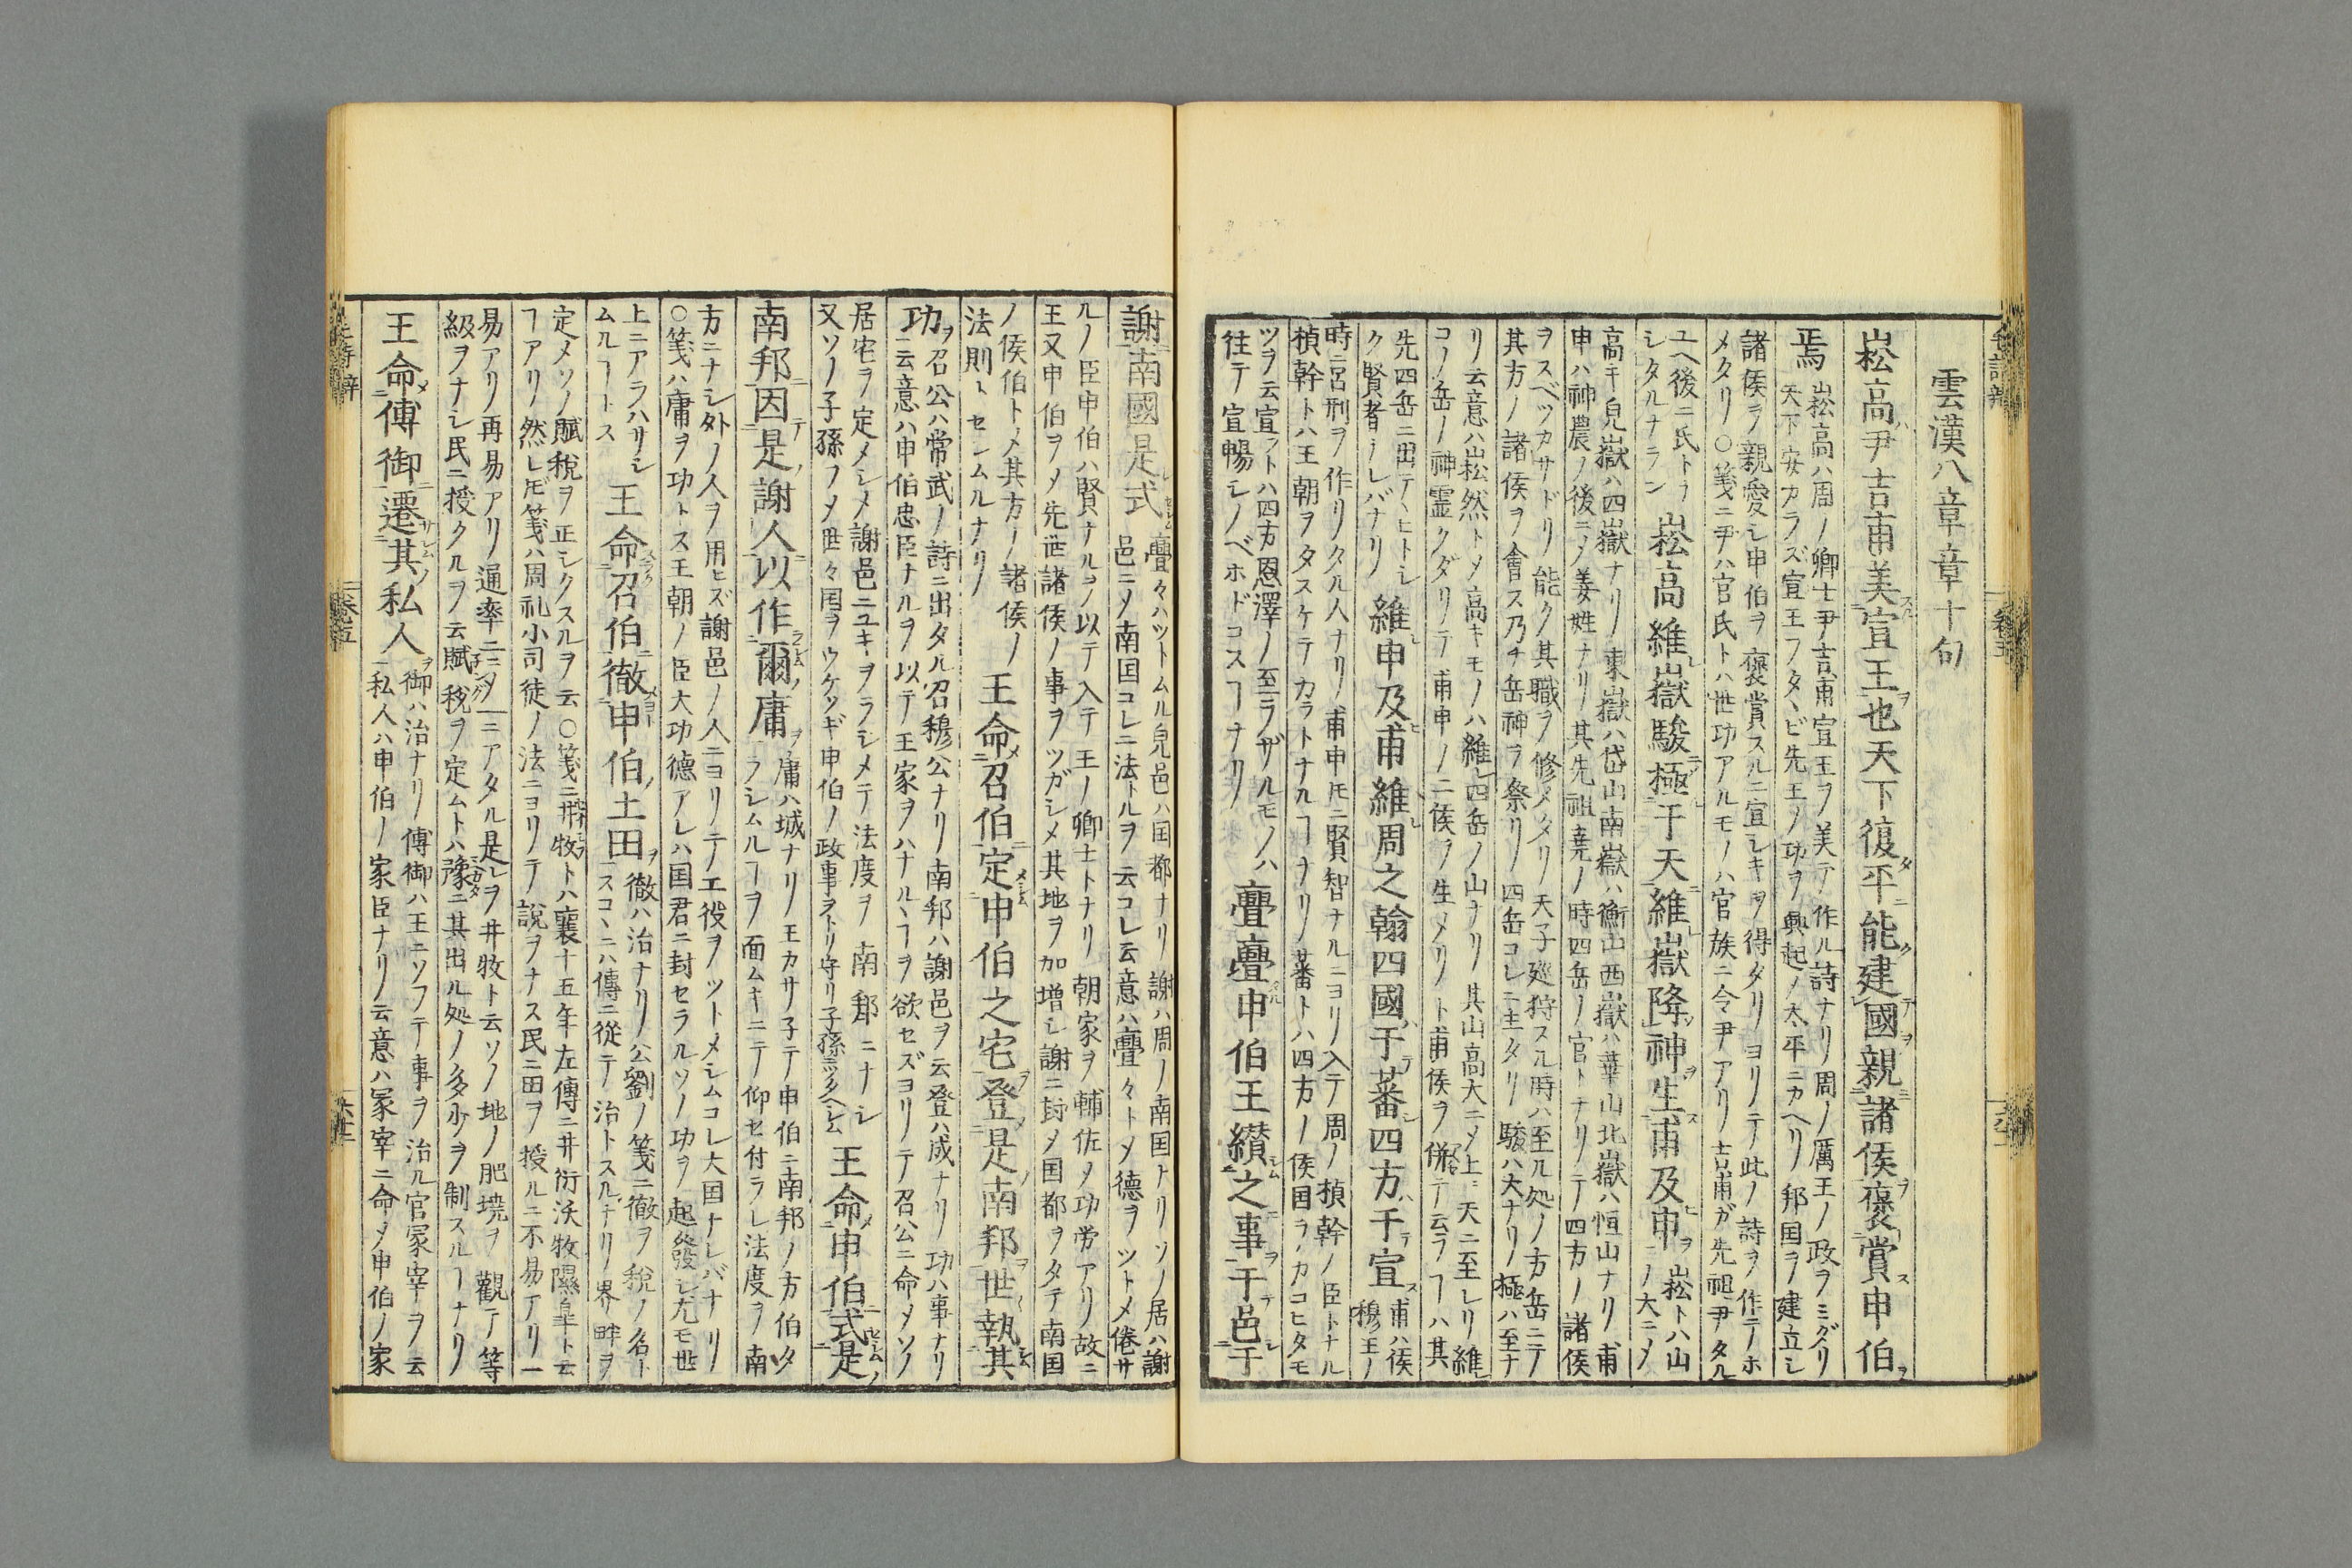 雲漢八章章十句
崧高尹吉甫美宣王也天下復平能建國親諸侯褒賞申伯
焉 崧高ハ周ノ卿士尹吉甫宣王ヲ美テ作ル詩ナリ周ノ厲王ノ政ヲミダリ
天下安カラズ宣王フタヽビ先王ノ功ヲ興起ノ太平ニカヘリ邦国ヲ建立シ
諸侯ヲ親愛シ申伯ヲ褒賞スルニ宣シキヲ得タリヨリテノ此ノ詩ヲ作テホ
メタリ○箋ニ尹ハ官氏トハ世功アルモノハ官族ニ令尹アリノ吉甫ガ先祖尹タル
ユヘ後ニ氏トシタルナラン 崧高維嶽駿極于天維嶽降神生甫及申 崧トハ山ノ大ニメ
高キ皃嶽ハ四嶽ナリ東嶽ハ岱山南嶽ハ衡山西嶽ハ華山北嶽ハ恒山ナリ甫
申ハ神農ノ後ニメ姜姓ナリ其先祖堯ノ時四岳ノ官トナリテ四方ノ諸侯
ヲスベツカサドリ能ク其職ヲ修メタリ天子巡狩スル時ハ至ル処ノ方岳ニテ
其方ノ諸侯ヲ會ス乃チ岳神ヲ祭リノ四岳コレニ主タリ駿ハ大ナリノ極ハ至ナ
リ云意ハ崧然トメ高キモノハ維四岳ノ山ナリ其山高大ニメ上ニ天ニ至レリ維
コノ岳ノ神霊クダリテ甫申ノ二侯ヲ生メリノト甫侯ヲ併テ云フヿハ其
先四岳ニ出テヒトシ
ク賢者ナレバナリ 維申及甫維周之翰四國于蕃四方于宣 甫ハ侯穆王ノ
時ニ呂刑ヲ作リタル人ナリノ甫申𪜈ニ賢智ナルニヨリ入テ周ノ楨幹ノ臣トナル
楨幹トハ王朝ヲタスケテカラトナルヿナリノ蕃トハ四方ノ侯国ヲカコヒタモ
ツヲ云宣フトハ四方恩澤ノ至ラザルモノハ
往テ宣暢シノベホドコスヿナリノ 亹亹申伯王纉之事于邑于
謝南國是式 亹々ハツトムル皃邑ハ国都ナリ謝ハ周ノ南国トリソノ居ハ謝
邑ニメ南国コレニ法トルヲ云コレ云意ハ亹々トメ德ヲツトメ倦サ
ルノ臣申伯ハ賢ナルヲ以テ入テ王ノ卿士トナリ朝家ヲ輔佐メ功労アリ故ニ
王又申伯ヲメ先世諸侯ノ事ヲツガシメ其地ヲ加増シ謝ニ封メ国都ヲタテ南国
ノ侯伯トメ其方ノ諸侯ノ
法則トセシムルナリノ 王命召伯定申伯之宅登是南邦世執其
功 召公ハ常武ノ詩ニ出タル召穆公ナリ南邦ハ謝邑ヲ云登ハ成ナリノ功ハ事ナリ
云意ハ申伯忠臣ナルヲ以テ王家ヲハナルヽヿヲ欲セズヨリテ召公ニ命メソノ
居宅ヲ定メシメ謝邑ニユキヲラシメテ法度ヲ南邦ニナシ
又ソノ子孫フメ世々国ヲウケツギ申伯ノ政事ヲトリ守リ子孫ニ 王命申伯式是
南邦因是謝人以作爾庸 庸ハ城ナリノ王カサ子テ申伯ニ南邦ノ方伯タ
ラシムルヿヲ面ムキニテ仰セ付ラレ法度ヲ南
方ニナシ外ノ人ヲ用ヒズ謝邑ノ人ニヨリテノ工役ヲツトメシムコレ大国ナレバナリノ
○箋ハ庸ヲ功トス王朝ノ臣大功德アレハ国君ニ封セラルソノ功ヲ起發シ尤モ世
上ニアラハサシ
ムルヿトス 王命召伯徹申伯土田 徹ハ治ナリノ公劉ノ箋ニ徹ヲ税ノ名ト
スコヽニハ傳ニ從テ治トスルナリノ界畔ヲ
定メソノ賦税ヲ正シクスルヲ云○箋ニ井牧トハ襄廿五年左傳ニ井衍沃牧隰皐ト云
ヿアリノ然レ𪜈箋ハ周礼小司徒ノ法ニヨリテ說ヲナス民ニ田ヲ授ルニ不易アリ一
易アリノ再易アリノ通率ニニヲ一ニアタル是レヲ井牧ト云ソノ地ノ肥墝ヲ觀テ等
級ヲナシ民ニ授クルヲ云賦税ヲ定ムトハ豫ニ其出ル処ノ多少ヲ制スルヿナリ
王命傅御遷其私人 御ハ治ナリノ傅御ハ王ニソフテ事ヲ治ル官冢宰ヲ云
私人ハ申伯ノ家臣ナリノ云意ハ冢宰ニ命メ申伯ノ家